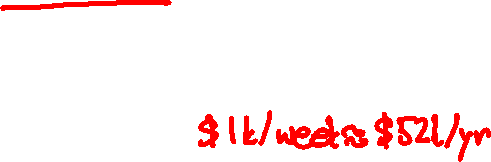 $1k/week is $52k/yr